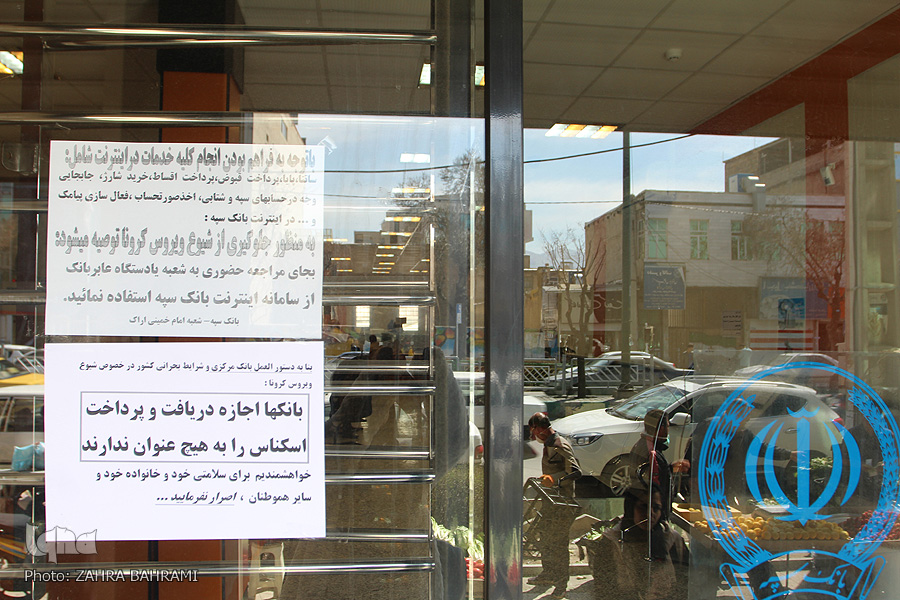 باتوجه به فراهم بودن انجام کلیه خدمات در اینترنت شامل:
ساتنا،پایا،پرداخت قبوض،پرداخت اقساط،خرید شارژ، جابجایی
وجه درحسابهای سپه و شتابی، اخذصورتحساب ،فعال سازی پیامک
و ... در اینترنت بانک سپه :
به منظور جلوگیری از شیوع ویروس کرونا توصیه میشود:
بجای مراجعه حضوری به شعبه یادستگاه عابربانک
از سامانه اینترنت بانک سپه استفاده نمائید.
بانک سپه- شعبه امام خمینی اراک
بنا به دستور العمل بانک مرکزی و شرایط بحرانی کشور در خصوص شیوع
ویروس کرونا :
بانکها اجازه دریافت و پرداخت
اسکناس را به هیچ عنوان ندارند
خواهشمندیم برای سلامتی خود و خانواده خود و
سایر هموطنان ، اصرار نفرمایید ...
بانک سپه
iqna
Photo: ZAHRA BAHRAMI